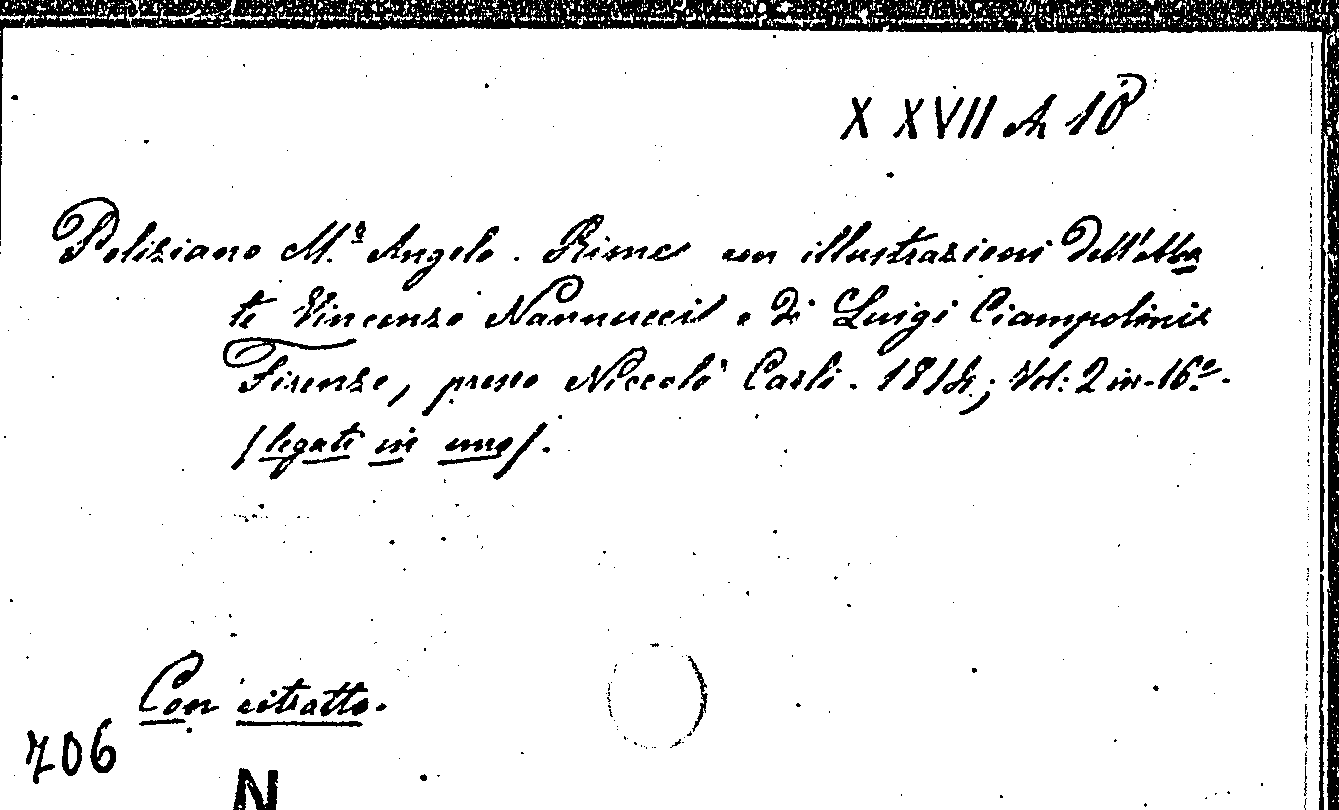 XXVII A 18
Poliziano M.º Angelo. Rime con illustrazioni dell'abba
te Vincenzo Nannucci e di Luigi Ciampolini
Firenze, presso Niccolò Carli. 1814; Vol: 2 in-16º.
(legati in uno).
Con ritratto.
706
N